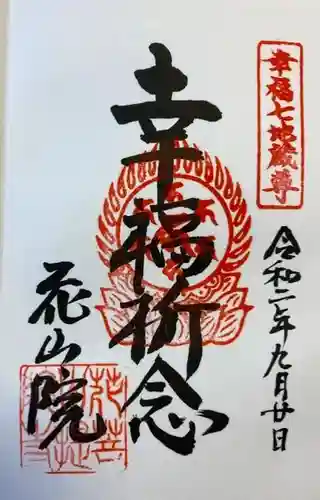 幸福七地蔵尊
令和二年九月廿日
幸福祈念
花山院